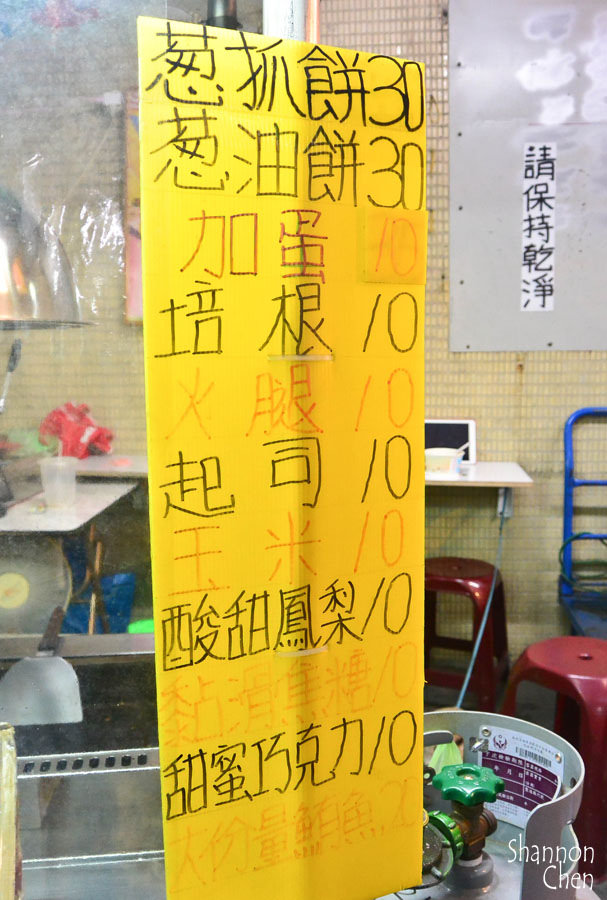 葱抓餅30
葱油餅30
加蛋10
培根10
火腿10
起司10
玉米10
酸甜鳳梨10
黏滑焦糖10
甜蜜巧克力10
大份量鮪魚
請保持乾淨
Shannon
Chen